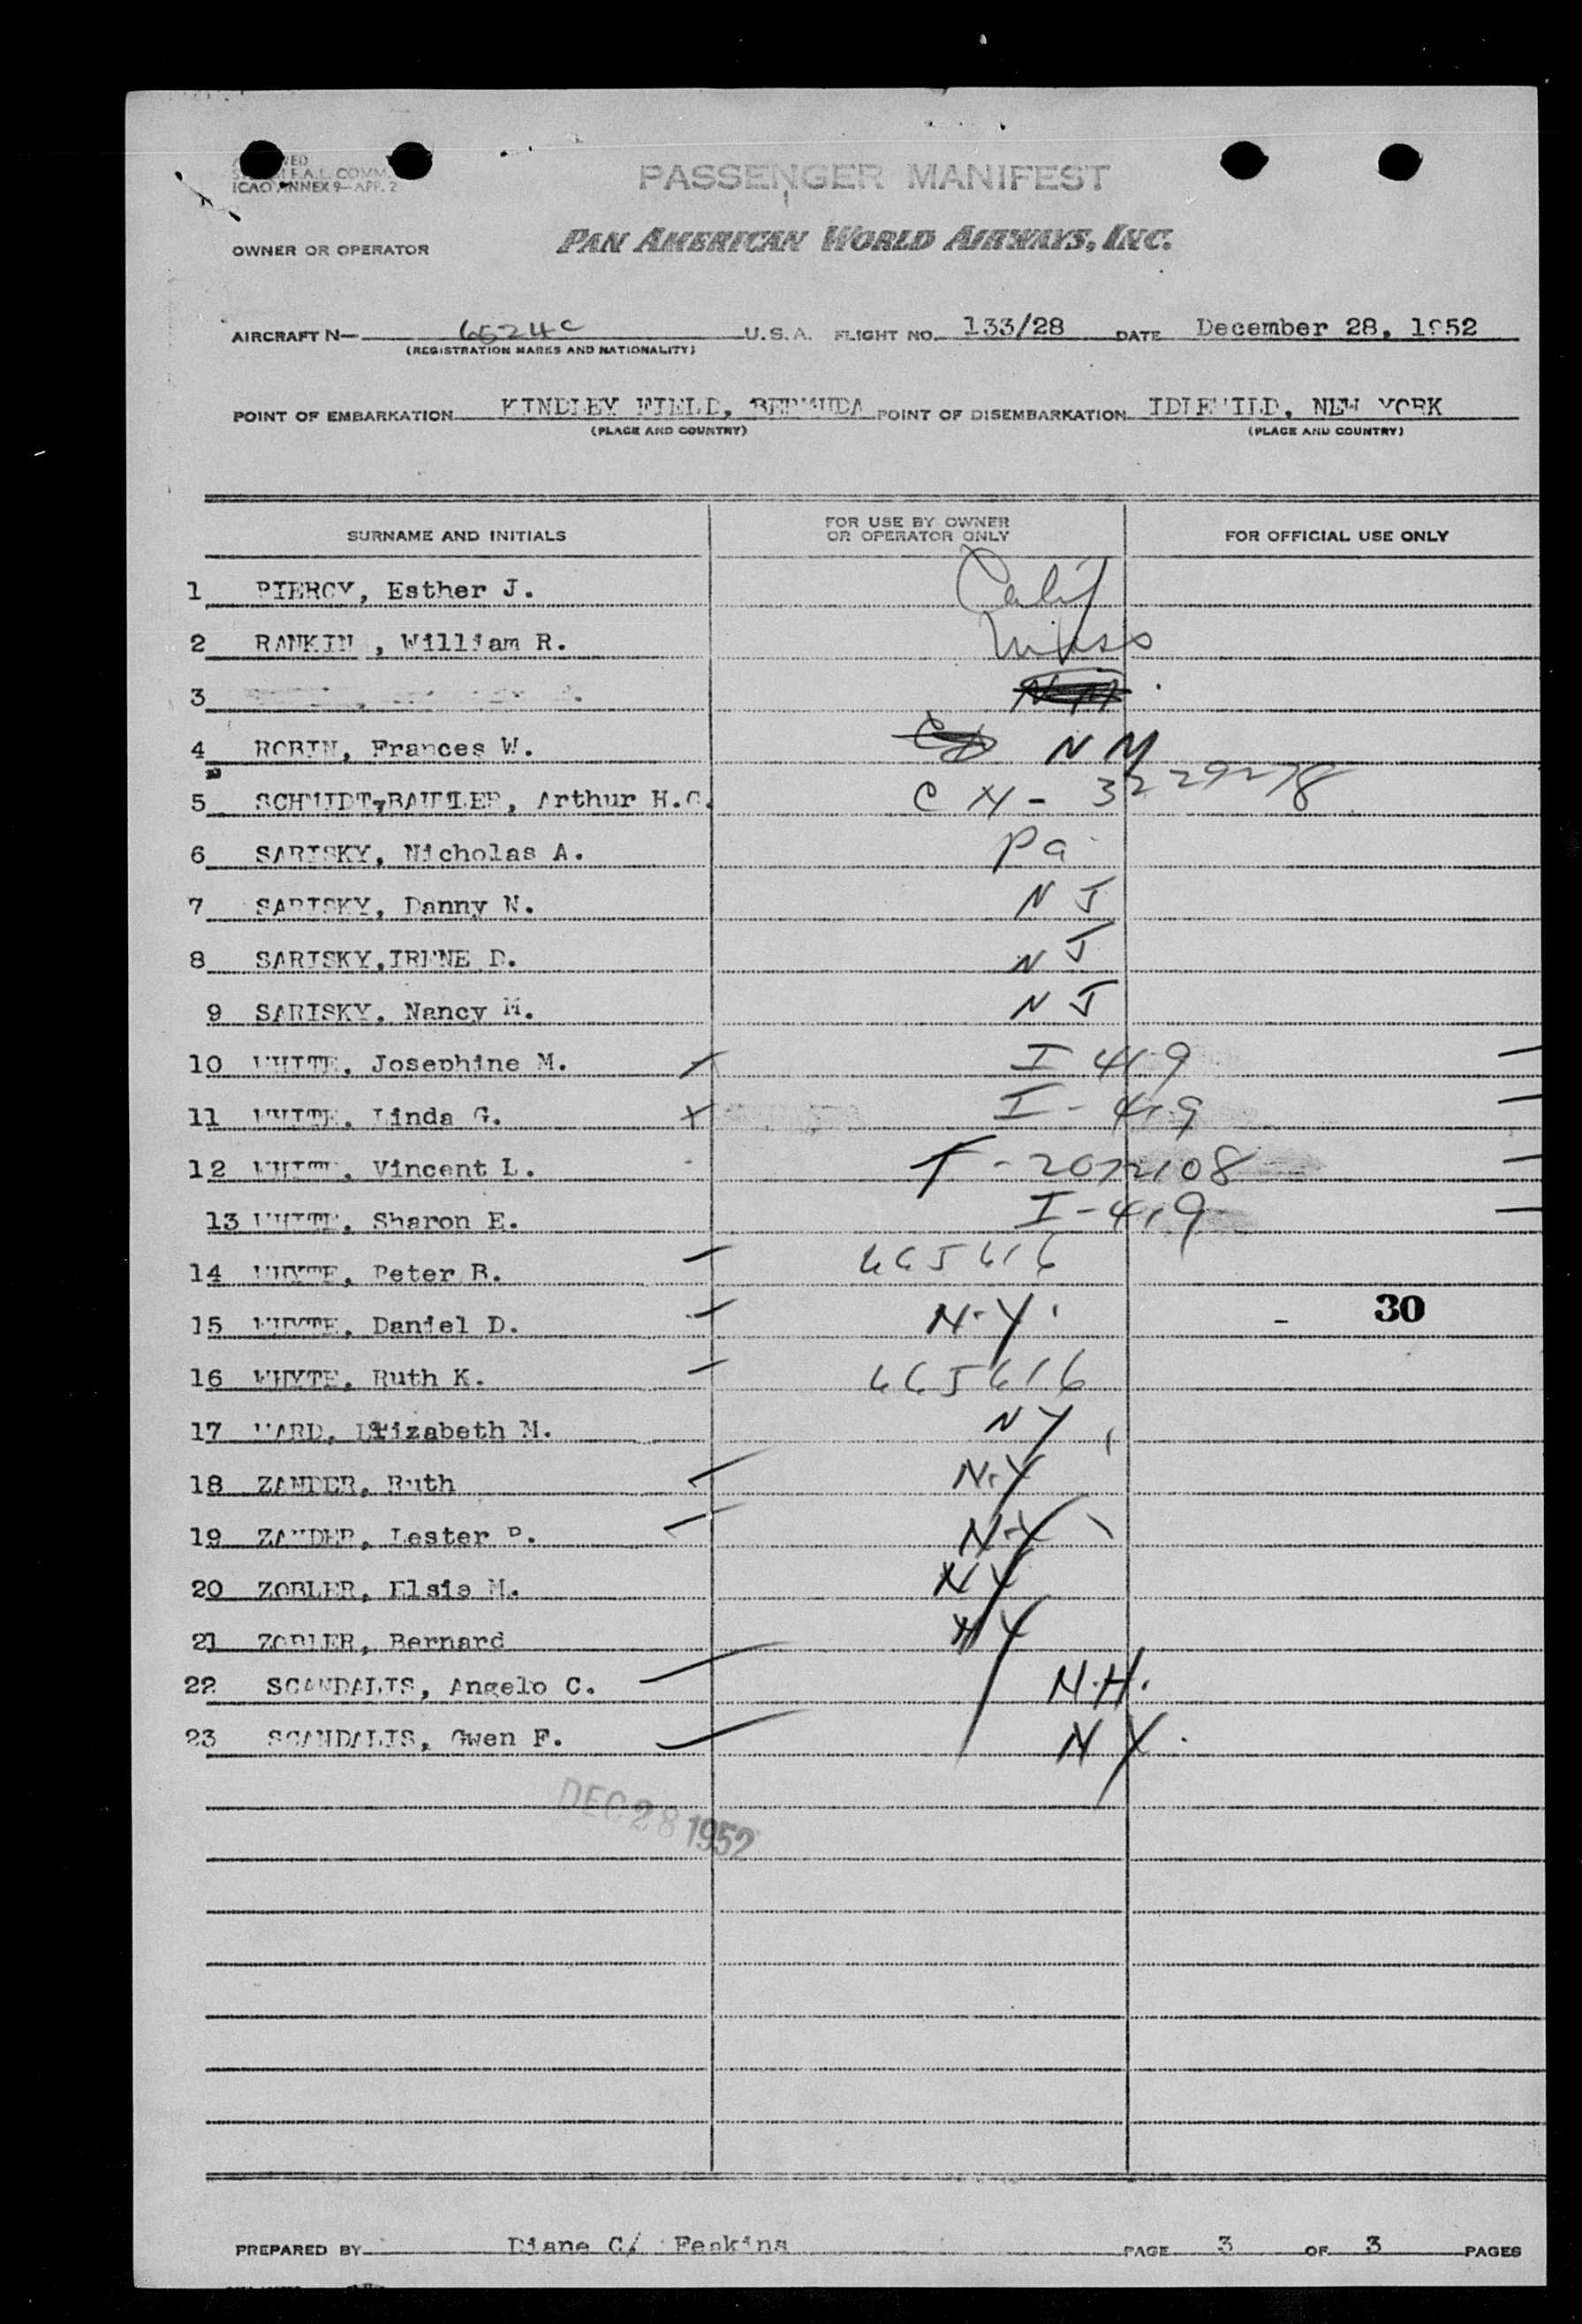 ICAO ANNEX 9—APR. 2
PASSENGER MANIFEST
OWNER OR OPERATOR PAN AMERICAN WORLD AIRWAYS, INC.
AIRCRAFT N— 6524C U.S.A. FLIGHT NO. 133/28 DATE December 28, 1952
(REGISTRATION MARKS AND NATIONALITY)
POINT OF EMBARKATION KINDLEY FIELD, BERMUDA POINT OF DISEMBARKATION IDLEWILD, NEW YORK
(PLACE AND COUNTRY) (PLACE AND COUNTRY)
SURNAME AND INITIALS FOR USE BY OWNER OR OPERATOR ONLY FOR OFFICIAL USE ONLY
1 PIERCY, Esther J. Calif
2 RANKIN , William R. Mass
3
4 ROBIN, Frances W. NM
5 SCHMIDT, Arthur H.C. CN - 3229278
6 SARISKY, Nicholas A. Pa
7 SARISKY, Danny N. N J
8 SARISKY,IRENE D. N J
9 SARISKY, Nancy M. N J
10 WHITE, Josephine M. I 419
11 WHITE, Linda G. I - 419
12 WHITE, Vincent L.
13 WHITE, Sharon E. I - 419
14 WHYTE, Peter B. 665616
15 WHYTE, Daniel D. N.Y. 30
16 WHYTE, Ruth K. 665616
17 WARD, Elizabeth M. NY
18 ZANDER, Ruth N.Y
19 ZANDER, Lester P. N.Y
20 ZOBLER, Elsie M. NY
21 ZOBLER, Bernard NY
22 SCANDALIS, Angelo C. N.H.
23 SCANDALIS, Gwen F. N Y
DEC 28 1952
PREPARED BY Diane C. PAGE 3 OF 3 PAGES